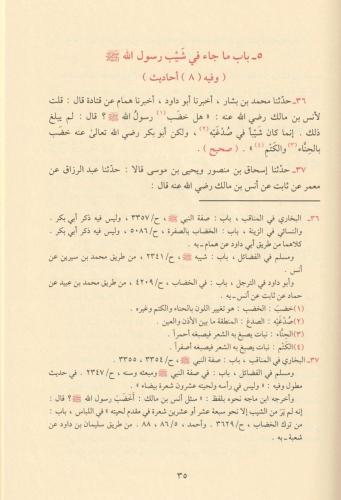 ٥ـ باب ما جاء في شَيْب رسول الله ﷺ
( وفيه ( ٨ ) أحاديث )
٣٦ـ حدّثنا محمد بن بشار ، أخبرنا أبو داود ، أخبرنا همام عن قتادة قال : قلت
لأنس بن مالك رضي الله عنه : « هل خضب(١) رسولُ الله ﷺ ؟ قال : لم يبلغ
ذلك . إنما كان شَيْباً في صُدْغَيْه(٢) ، ولكن أبو بكر رضي الله تعالىٰ عنه خضَب
بالحِنَّاء(٣) والكَتَم(٤) » . ( صحيح ) .
٣٧ـ حدّثنا إسحاق بن منصور ويحيى بن موسى قالا : حدّثنا عبد الرزاق عن
معمر عن ثابت عن أنس بن مالك رضي الله عنه قال :
٣٦ـ البخاري في المناقب ، باب : صفة النبي ﷺ ، ح/ ٣٣٥٧ ، وليس فيه ذكر أبي بكر .
والنسائي في الزينة ، باب : الخضاب بالصفرة ، ح/ ٥٠٨٦ ، وليس فيه ذكر أبي بكر .
كلاهما من طريق أبي داود عن همام ـ به .
ومسلم في الفضائل ، باب : شيبه ﷺ ، ح/ ٢٣٤١ ، من طريق محمد بن سيرين عن
أنس .
وأبو داود في الترجل ، باب : في الخضاب ، ح/ ٤٢٠٩ ، من طريق محمد بن عبيد عن
حماد عن ثابت عن أنس ـ به .
(١) خضبَ : الخضب : هو تغيير اللون بالحناء والكتم وغيره .
(٢) صُدْغَيْه : الصدغ : المنطقة ما بين الأذن والعين .
(٣) الحِنَّاء : نبات يصبغ به الشعر فيصبغه أحمراً .
(٤) الكَتَم : نبات يصبغ به الشعر فيصبغه أصفراً .
٣٧ـ البخاري في المناقب ، باب : صفة النبي ﷺ ، ح/ ٣٣٥٤ ، ٣٣٥٥ .
ومسلم في الفضائل ، باب : في صفة النبي ﷺ ومبعثه وسنه ، ح/ ٢٣٤٧ . في حديث
مطول وفيه : « وليس في رأسه ولحيته عشرون شعرة بيضاء » .
وأخرجه ابن ماجه نحوه بلفظ : « سئل أنس بن مالك : أَخضَبَ رسول الله ﷺ ؟ قال :
إنه لم يَرَ من الشيب إلا نحو سبعة عشر أو عشرين شعرة في مقدم لحيته » في اللباس ، باب :
من ترك الخضاب ، ح/ ٣٦٢٩ . وأحمد ، ٥/ ٨٦ ، ٨٨ . من طريق سليمان بن داود عن
شعبة ـ به .
٣٥